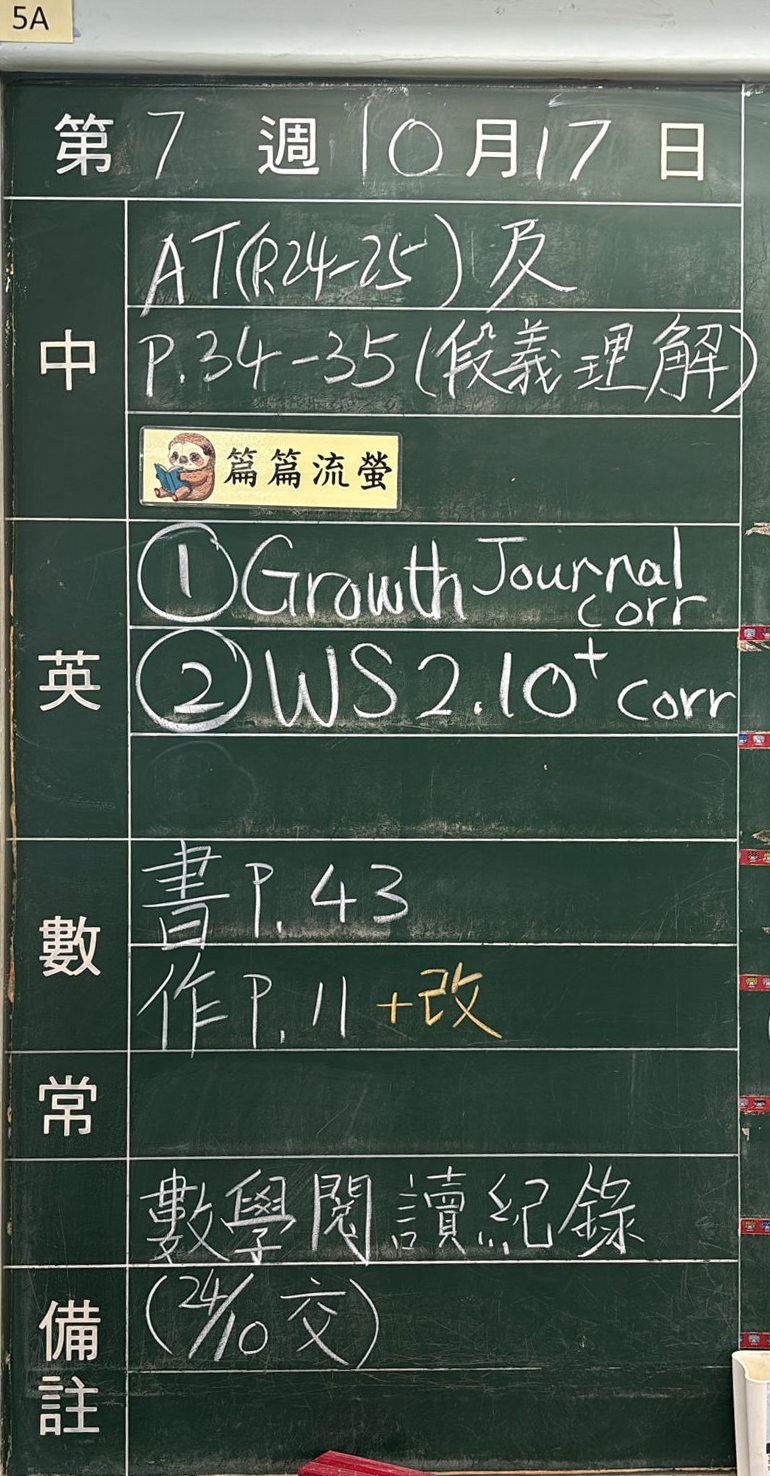 5A
第 7 週 10 月 17 日
中
AT(P.24-25) 及
P.34-35 (段義理解)
篇篇流螢
英
① Growth Journal corr
② WS 2.10⁺ corr
數
書 P. 43
作 P. 11 +改
常
數學閱讀紀錄
備註
(24/10 交)